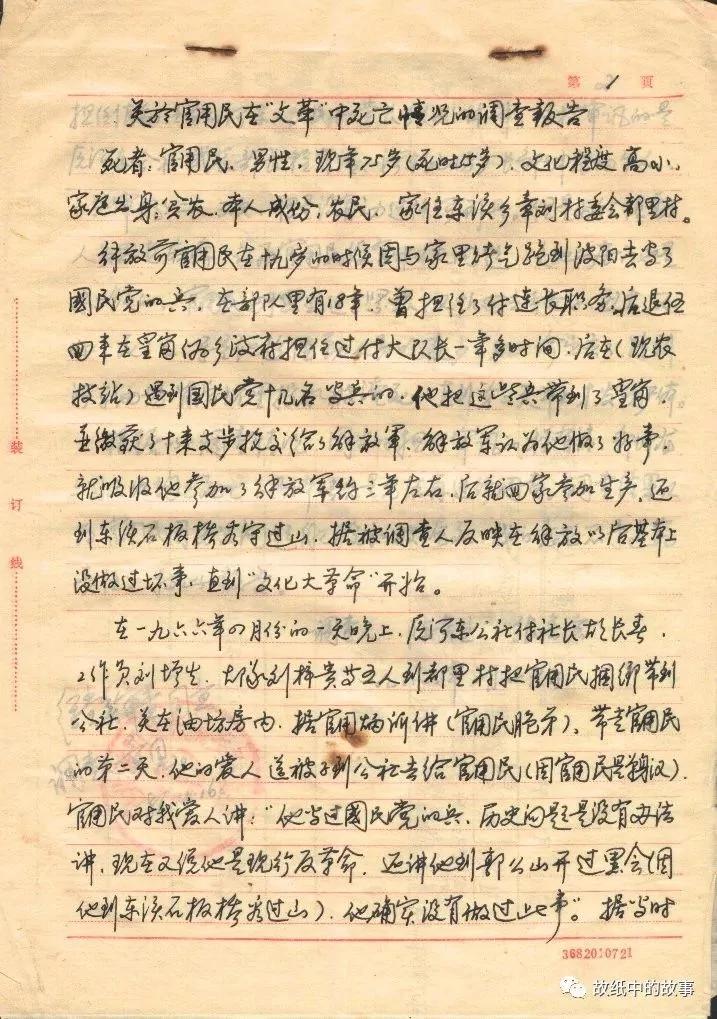 第 21 頁
关於官用民在“文革”中死亡情况的调查報告
死者:官用民,男性,现年75岁(死时55岁),文化程度高小、
家庭出身:贫农,本人成份:农民,家住东溪乡章刘村委会都里村。
解放前官用民在十九岁的时候因与家里纬气跑到波阳去当了
國民党的兵,在部队里有18年,曾担任了付连长职务,后退伍
回来在里岗伪乡政府担任过付大队长一年多时间,后在(现农
技站)遇到国民党十几名当兵的,他把这些兵带到了里岗
并缴获了十来支步枪交给了解放军,解放军认为他做了好事,
就吸收他参加了解放军约三年左右,后就回家参加生产,还
到东溪石板桥看守过山,据被调查人反映在解放以后基本上
没做过坏事,直到“文化大革命”开始。
在一九六六年四月份的一天晚上,原河东公社付社长胡长春,
工作员刘增先,大队刘梓贵等五人到都里村把官用民捆绑带到
公社,关在油坊房内,据官用炳所讲(官用民胞弟),带走官用民
的第二天,他的爱人送被子到公社去给官用民(因官用民是鳏汉),
官用民对我爱人讲:“他当过國民党的兵,历史问题是没有办法
讲,现在又说他是现行反革命,还讲他到郭公山开过黑会(因
他到东溪石板桥看过山),他确实没有做过此事”。据当时
装订线
3682010721
故纸中的故事